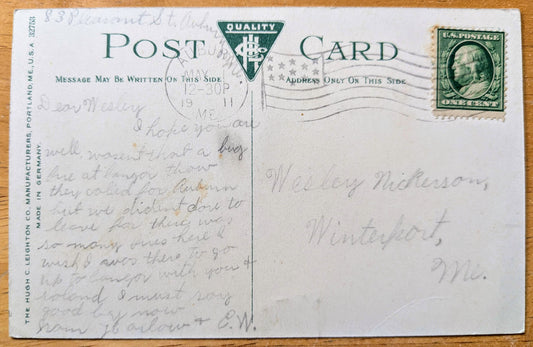 83 Pleasant St. Auburn
POST CARD
QUALITY
HLCo
MESSAGE MAY BE WRITTEN ON THIS SIDE
ADDRESS ONLY ON THIS SIDE
AUBURN
MAY
12-30P
1911
ME.
U.S. POSTAGE
ONE CENT
Dear Wesley
I hope you are
well wasent that a big
fire at bangor thow
they caled for Auburn
but we dident dare to
leave for there was
so many ones here I
wish I was there to go
up to bangor with you &
roland I must say
good by now
from & E.W.
Wesley Nickerson,
Winterport,
Me.
THE HUGH C. LEIGHTON CO. MANUFACTURERS, PORTLAND, ME., U.S.A. 32753
MADE IN GERMANY.